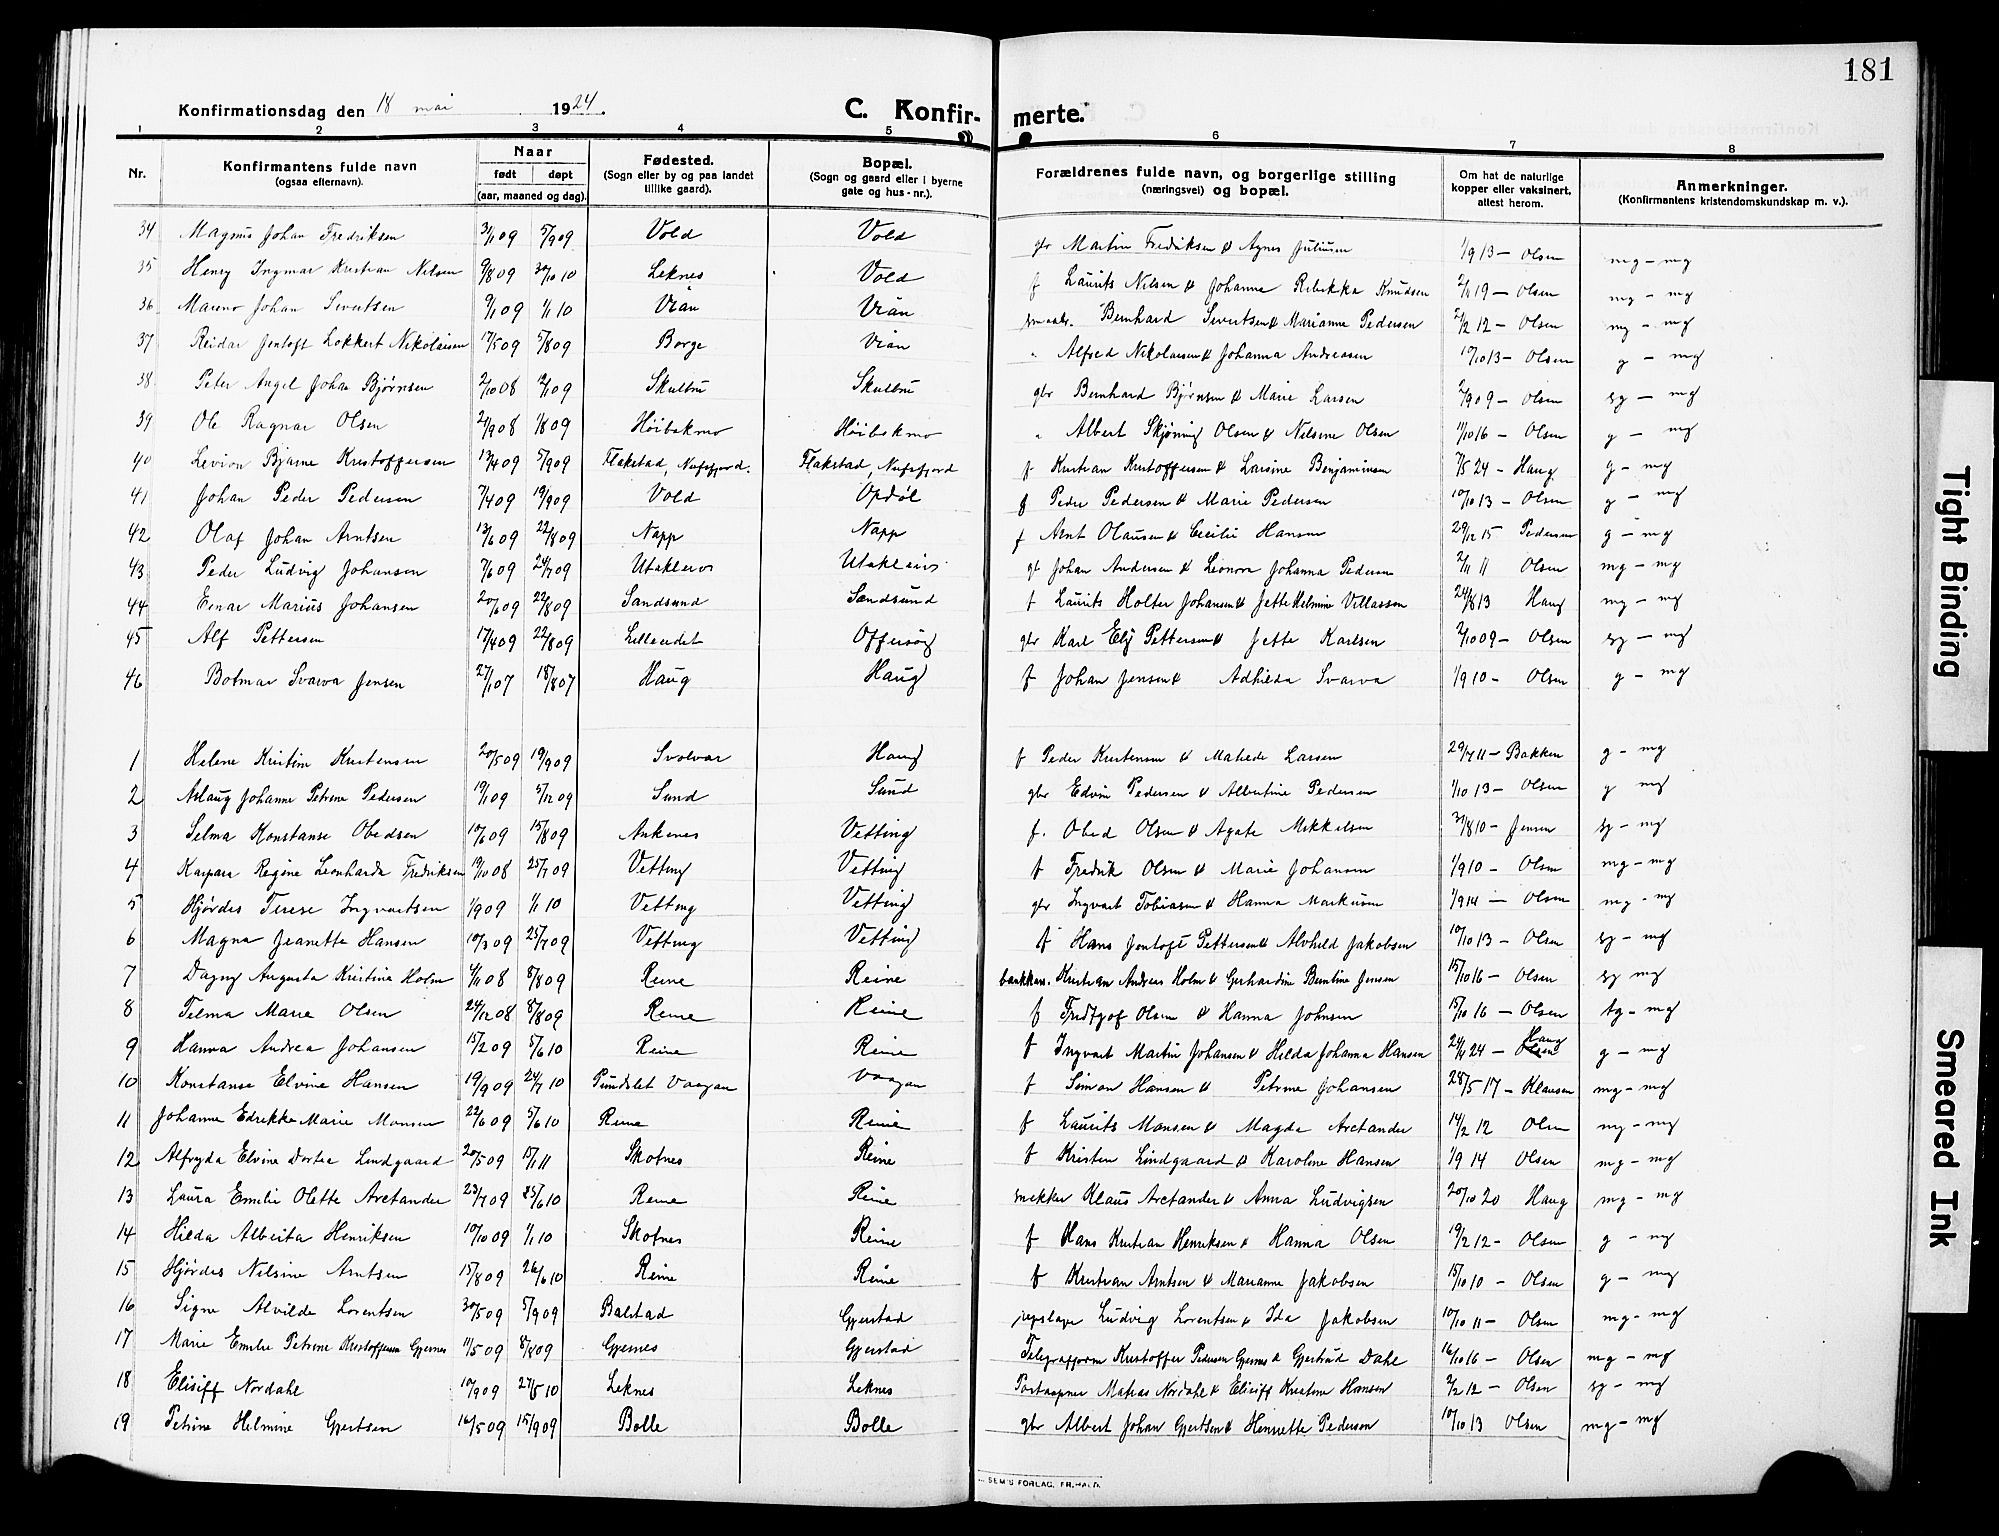 181
Konfirmationsdag den 18 mai 1924.
C. Konfirmerte.
1 2 3 4 5 6 7 8
Nr. Konfirmantens fulde navn (ogsaa efternavn). Naar født døpt (aar, maaned og dag). Fødested. (Sogn eller by og paa landet tillike gaard). Bopæl. (Sogn og gaard eller i byerne gate og hus-nr.). Forældrenes fulde navn, og borgerlige stilling (næringsvei) og bopæl. Om hat de naturlige kopper eller vaksinert, attest herom. Anmerkninger. (Konfirmantens kristendomskundskap m. v.).
34 Magnus Johan Fredriksen 5/9 09 Vold Vold gbr Martin Fredriksen & Agnes Juliusen 1/9 13 – Olsen mg – mg
35 Henry Ingmar Kristian Nilsen 9/8 09 30/10 10 Leknes Vold f Laurits Nilsen & Johanna Rebekka Knudsen 2/1 19 – Olsen mg – mg
36 Mareno Johan Sivertsen 9/1 09 1/1 10 Vian Vian Bernhard Sivertsen & Marianne Pedersen 2/2 12 – Olsen mg – mg
37 Reidar Jentoft Lokkert Nikolaisen 17/5 09 5/8 09 Borge Vian " Alfred Nikolaisen & Johanna Andreasen 10/10 13 – Olsen g – mg
38 Peter Angel Johan Bjørnsen 2/10 08 Skulbru Skulbru gbr Bernhard Bjørnsen & Marie Larsen 2/9 09 – Olsen sg – mg
39 Ole Ragnar Olsen 21/9 08 1/8 09 Høibakmo Høibakmo " Albert Skjønvig Olsen & Nilsine Olsen 11/10 16 – Olsen g – mg
40 Levion Bjarne Kristoffersen 17/4 09 5/9 09 Flakstad, Nusfjord. Flakstad, Nusfjord f Kristian Kristoffersen & Larsine Benjaminsen 7/5 24 – Haug g – mg
41 Johan Peder Pedersen 7/4 09 19/9 09 Vold Opdøl f Peder Pedersen & Marie Pedersen 10/10 13 – Olsen g – mg
42 Olaf Johan Arntsen 13/6 09 22/8 09 Napp Napp f Arnt Olausen & Cecilie Hansen 29/12 15 Pedersen g – mg
43 Peder Ludvig Johansen 7/6 09 24/7 09 Utakleiv Utakleiv gb Johan Andersen & Leonora Johanna Pedersen 2/11 11 Olsen mg – mg
44 Einar Marius Johansen 20/6 09 22/8 09 Sandsund Sandsund f Laurits Holter Johansen & Jette Helmine Villassen 24/8 13 Haug mg – mg
45 Alf Pettersen 17/4 09 22/8 09 Lilleeidet Offersøy gbr Karl Elij Pettersen & Jette Karlsen 2/10 09 – Olsen sg – mg
46 Botmar Svarva Jensen 27/1 07 18/8 07 Haug Haug f Johan Jensen & Adhilda Svarva 1/9 10 – Olsen g – mg
1 Helene Kristine Kristensen 20/5 09 19/9 09 Svolvær Haug f Peder Kristensen & Matilde Larsen 29/7 11 – Bakken g – mg
2 Aslaug Johanne Petrine Pedersen 19/1 09 5/12 09 Sund Sund gbr Edvin Pedersen & Albertine Pedersen 1/10 13 – Olsen g mg
3 Selma Konstanse Obedsen 10/6 09 15/8 09 Ankenes Vetting f. Obed Olsen & Agate Mikkelsen 31/8 10 – Jensen sg – mg
4 Kaspara Regine Leonharda Fredriksen 19/10 08 25/7 09 Vetting Vetting f Fredrik Olsen & Marie Johansen 1/9 10 – Olsen mg – mg
5 Hjørdis Terese Ingvartsen 1/9 09 1/1 10 Vetting Vetting gbr Ingvart Tobiasen & Hanna Markusen 1/9 14 – Olsen mg – mg
6 Magna Jeanette Hansen 10/3 09 25/7 09 Vetting Vetting f Hans Jentoft Pettersen & Alvhild Jakobsen 10/10 13 – Olsen sg – mg
7 Dagny Augusta Kristine Holm 4/11 08 8/8 09 Reine Reine bankkass. Kristian Andreas Holm & Gerhardine Berntine Jensen 15/10 16 – Olsen sg mg
8 Telma Marie Olsen 24/12 08 8/8 09 Reine Reine f Fredtjof Olsen & Hanna Johnsen 15/10 16 – Olsen tg – mg
9 Hanna Andrea Johansen 15/2 09 5/6 10 Reine Reine f Ingvart Martin Johansen & Hilda Johanna Hansen 24/4 24 – Haug g – mg
10 Konstanse Elvine Hansen 19/9 09 24/7 10 Pundslet Vaagan Vaagan f Simon Hansen & Petrine Johansen 28/5 17 – Klausen mg – mg
11 Johanne Edrikke Marie Monsen 22/6 09 5/6 10 Reine Reine f Laurits Monsen & Magda Arctander 14/2 12 Olsen mg – mg
12 Alfryda Elvine Dortea Lindgaard 20/5 09 15/1 11 Skotnes Reine f Kristen Lindgaard & Karoline Hansen 1/9 14 Olsen mg – mg
13 Laura Emilie Olette Arctander 23/7 09 25/6 10 Reine Reine snekker Klaus Arctander & Anna Ludvigsen 20/10 20 Haug mg – mg
14 Hilda Alberta Henriksen 10/10 09 1/1 10 Skotnes Reine f Hans Kristian Henriksen & Hanna Olsen 19/2 12 – Olsen g – mg
15 Hjørdis Nilsine Arntsen 15/8 09 26/6 10 Reine Reine f Kristian Arntsen & Marianne Jakobsen 15/10 10 – Olsen g – mg
16 Signe Alvilde Lorentsen 30/5 09 5/9 09 Balstad Gjerstad Ludvig Lorentsen & Ida Jakobsen 10/10 11 – Olsen mg – mg
17 Marie Emilie Petrine Kristoffersen Gjernes 11/5 09 8/8 09 Gjernes Gjerstad Kristoffer Pedersen Gjernes & Gjertrud Dahl 16/10 16 – Olsen mg – mg
18 Elisiff Nordahl 10/9 09 27/5 10 Leknes Leknes Postaapner Matias Nordahl & Elisiff Kristine Hansen 2/2 12 – Olsen sg – mg
19 Petrine Helmine Gjertsen 16/5 09 15/9 09 Bolle Bolle gbr Albert Johan Gjertsen & Henriette Pedersen 10/10 13 Olsen mg – mg
SEM'S FORLAG, FR.HALD.
Tight Binding
Smeared Ink